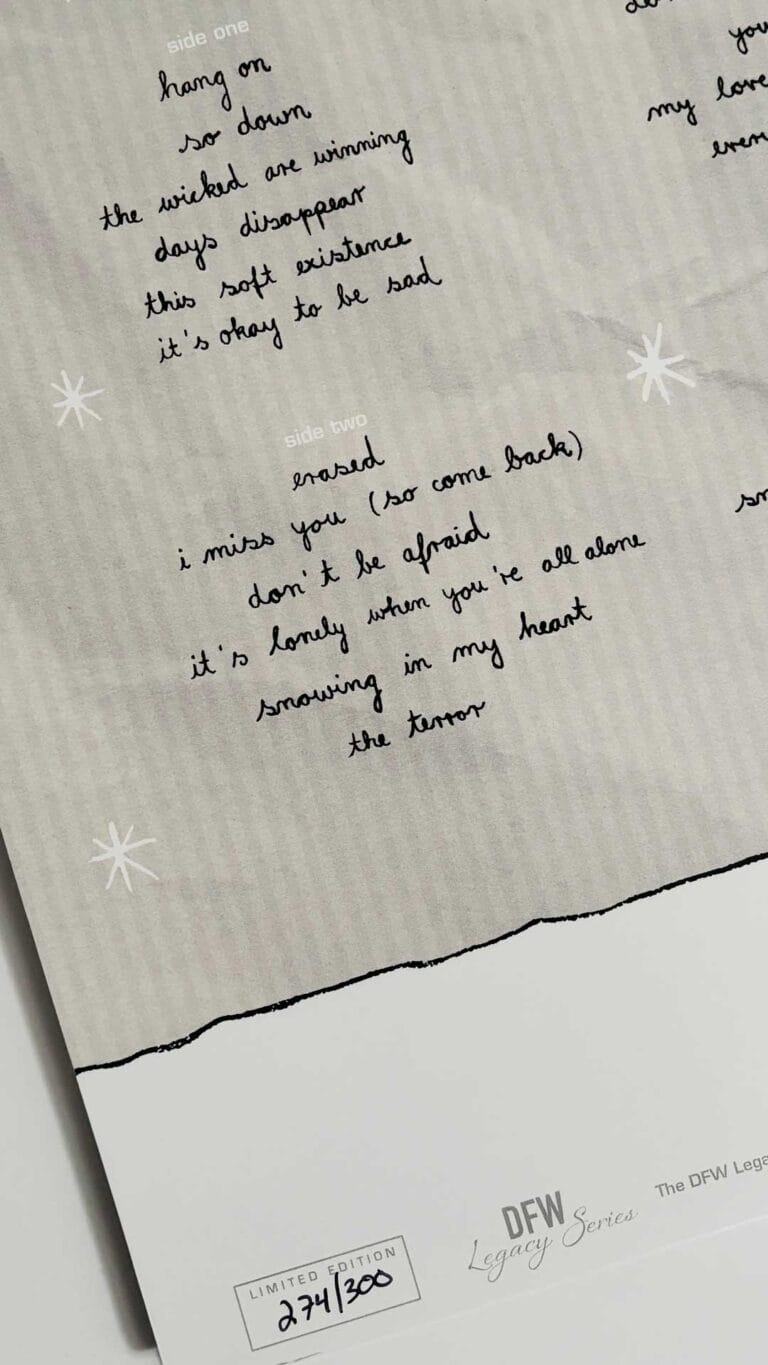 side one
hang on
so down
the wicked are winning
days disappear
this soft existence
it's okay to be sad
side two
erased
i miss you (so come back)
don't be afraid
it's lonely when you're all alone
snowing in my heart
the terror
you
my love
LIMITED EDITION
274/300
DFW
Legacy Series
The DFW